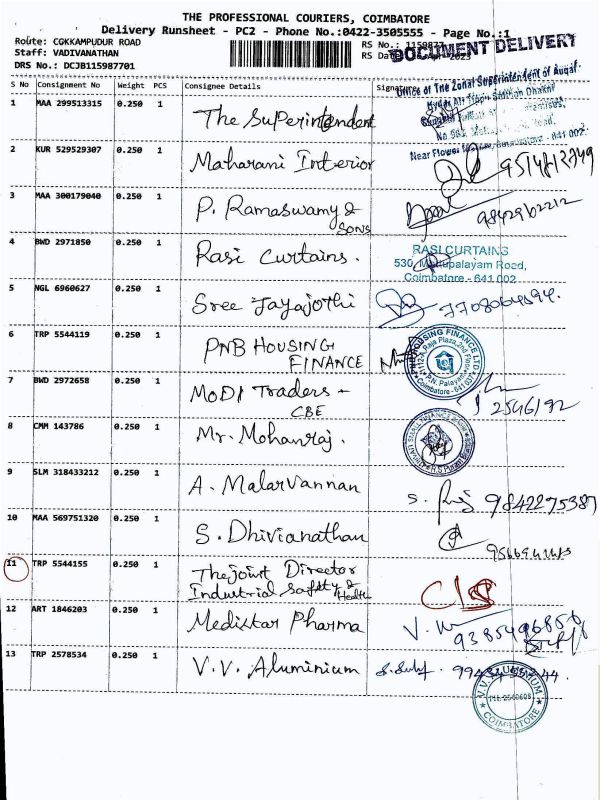 THE PROFESSIONAL COURIERS, COIMBATORE
Delivery Runsheet - PC2 - Phone No.:0422-3505555 - Page No.:1
Route: COKKAMPUDUR ROAD
Staff: VADIVANATHAN
DRS No.: DCJB115987701
RS No.: 1159877
RS Da
2023
DOCUMENT DELIVERY
S No Consignment No Weight PCS Consignee Details Signature
Office of The Zonal Superintendent of Auqaf
1 MAA 299513315 0.250 1 The Superintendent
Near Flower
641 002
2 KUR 529529307 0.250 1 Maharani Interior
3 MAA 300179040 0.250 1 P. Ramaswamy &
Sons
4 BWD 2971850 0.250 1 Rasi Curtains.
RASI CURTAINS
530, palayam Road,
Coimbatore - 641 002
5 NGL 6960627 0.250 1 Sree Jayajothi
6 TRP 5544119 0.250 1 PNB HOUSING
FINANCE
HOUSING FINANCE LTD
Coimbatore - 641
7 BWD 2972658 0.250 1 MODI Traders -
CBE
2546192
8 CMM 143786 0.250 1 Mr. Mohanraj.
9 SLM 318433212 0.250 1 A. Malarvannan
9842275387
10 MAA 569751320 0.250 1 S. Dhivianathan
11 TRP 5544155 0.250 1 The joint Director
Industrial Safety &
Health
12 ART 1846203 0.250 1 Medistar Pharma
9385496856
13 TRP 2578534 0.250 1 V.V. Aluminium
V.V. ALUMINIUM
COIMBATORE